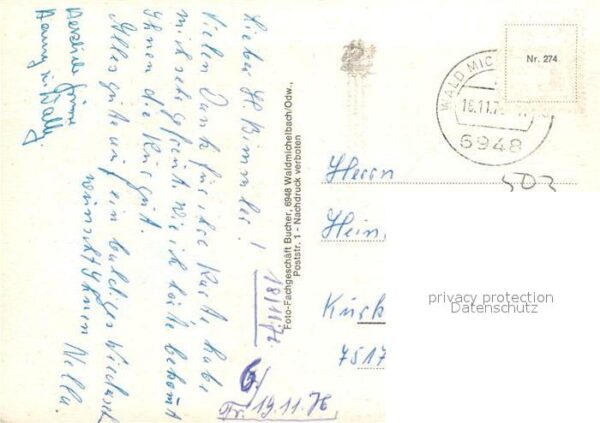 Lieber H. Bimmler!
Vielen Dank für ihre Karte habe
mich sehr gefreut. Wie ich hörte bekomt
Ihnen die Kur gut.
Alles gute auf ein baldiges Wiedersehn
wünscht Ihnen Nella.
Herzliche Grüsse
18/11.76.
Foto-Fachgeschäft Bucher, 6948 Waldmichelbach/Odw.,
Poststr. 1 - Nachdruck verboten
Nr. 274
WALD-MIC
16.11.76
6948
502
Herrn
Hein
Kurk
7517
privacy protection
Datenschutz
6/
Fr. 19.11.76